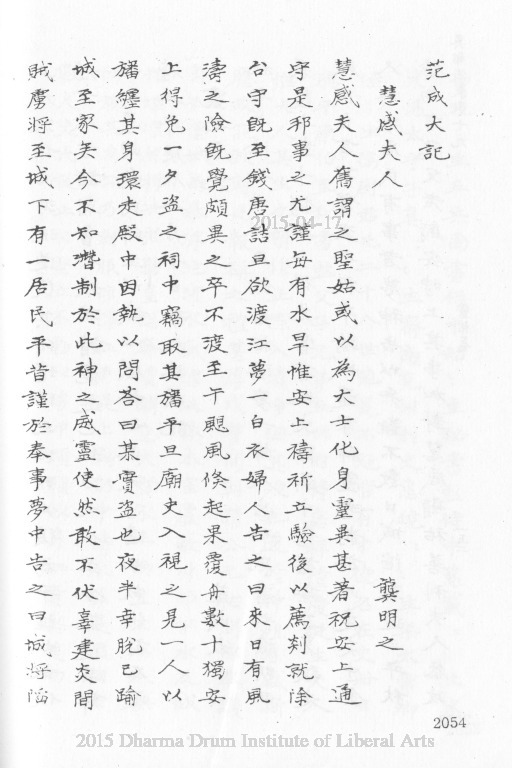 范成大記
慧感夫人
龔明之
慧感夫人舊謂之聖姑或以為大士化身靈異甚著祝安上通
守是邦事之尤謹每有水旱惟安上禱祈立驗後以薦剡就除
台守既至錢唐詰旦欲渡江夢一白衣婦人告之曰來日有風
濤之險既覺頗異之卒不渡至午颶風倏起果覆舟數十獨安
上得免一夕盜之祠中竊取其旛平旦廟史入視之見一人以
旛纏其身環走殿中因執以問荅曰某實盜也夜半幸脫已踰
城至家矣今不知潛制於此神之威靈使然敢不伏辜建炎間
賊虜將至城下有一居民平昔謹於奉事夢中告之曰城將陷
2054
2015-04-17
2015 Dharma Drum Institute of Liberal Arts